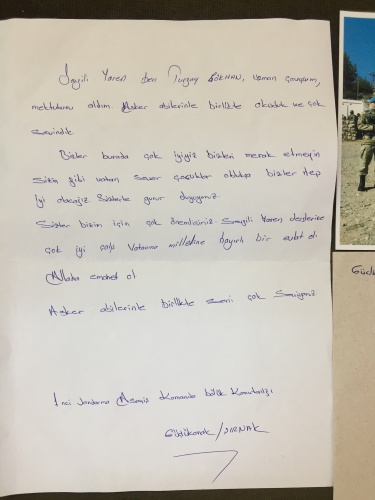 Sevgili Yaren ben Turgay GÖKHAN, uzman çavuşum,
mektubunu aldım. Asker abilerinle birlikte okuduk ve çok
sevindik.
Bizler burada çok iyiyiz bizleri merak etmeyin
Sizin gibi vatan sever çocuklar oldukça bizler hep
iyi olacağız. Sizlerle gurur duyuyoruz.
Sizler bizim için çok önemlisiniz. Sevgili Yaren derslerine
çok iyi çalış Vatanına milletine hayırlı bir evlat ol
Allaha emanet ol
Asker abilerinle birlikte seni çok seviyoruz
1nci Jandarma Komando bölük Komutanlığı
/ŞIRNAK
Güçlü